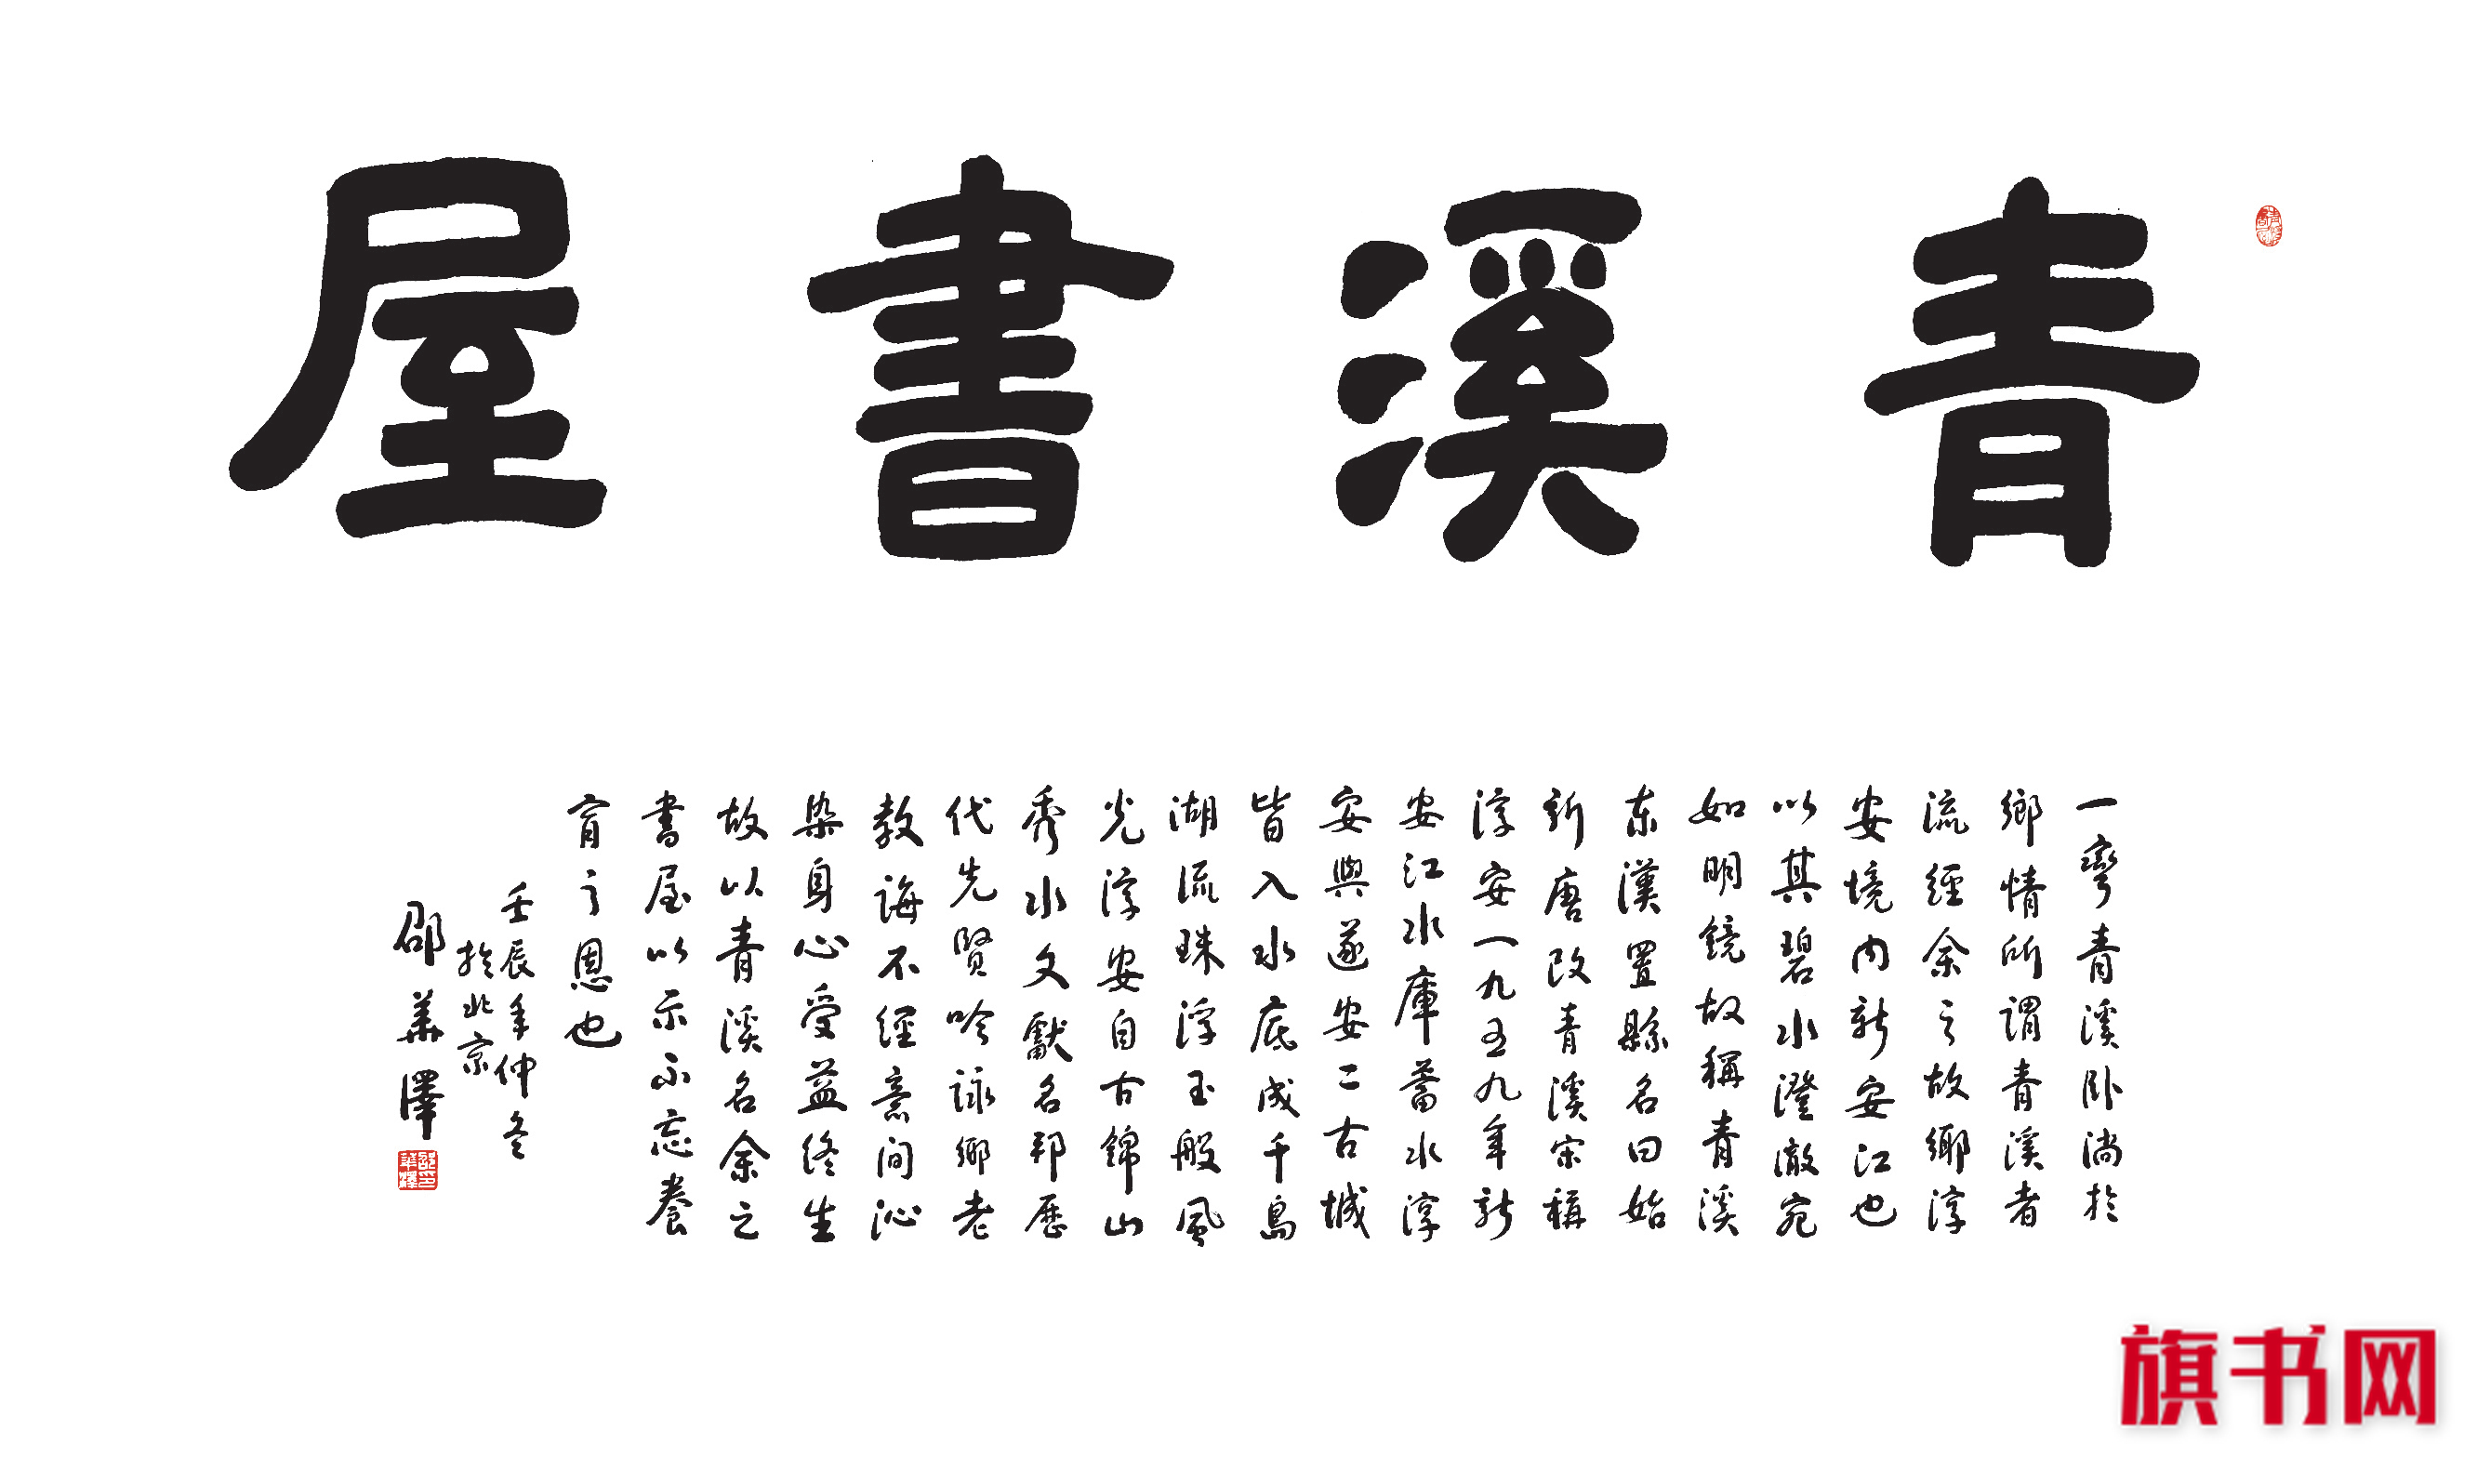 青溪書屋
一彎青溪卧淌於
鄉情所謂青溪者
流經余之故鄉淳
安境内新安江也
以其碧水澄澈宛
如明鏡故稱青溪
东漢置縣名曰始
新唐改青溪宋稱
淳安一九五九年新
安江水庫蓄水淳
安與遂安二古城
皆入水底成千島
湖流珠浮玉般風
光淳安自古錦山
秀水文獻名邦歷
代先賢吟詠鄉老
教誨不經意间沁
染身心受益终生
故以青溪名余之
書屋以示不忘養
育之恩也
壬辰年仲冬
於北京
邵華澤
邵華澤印
旗书网